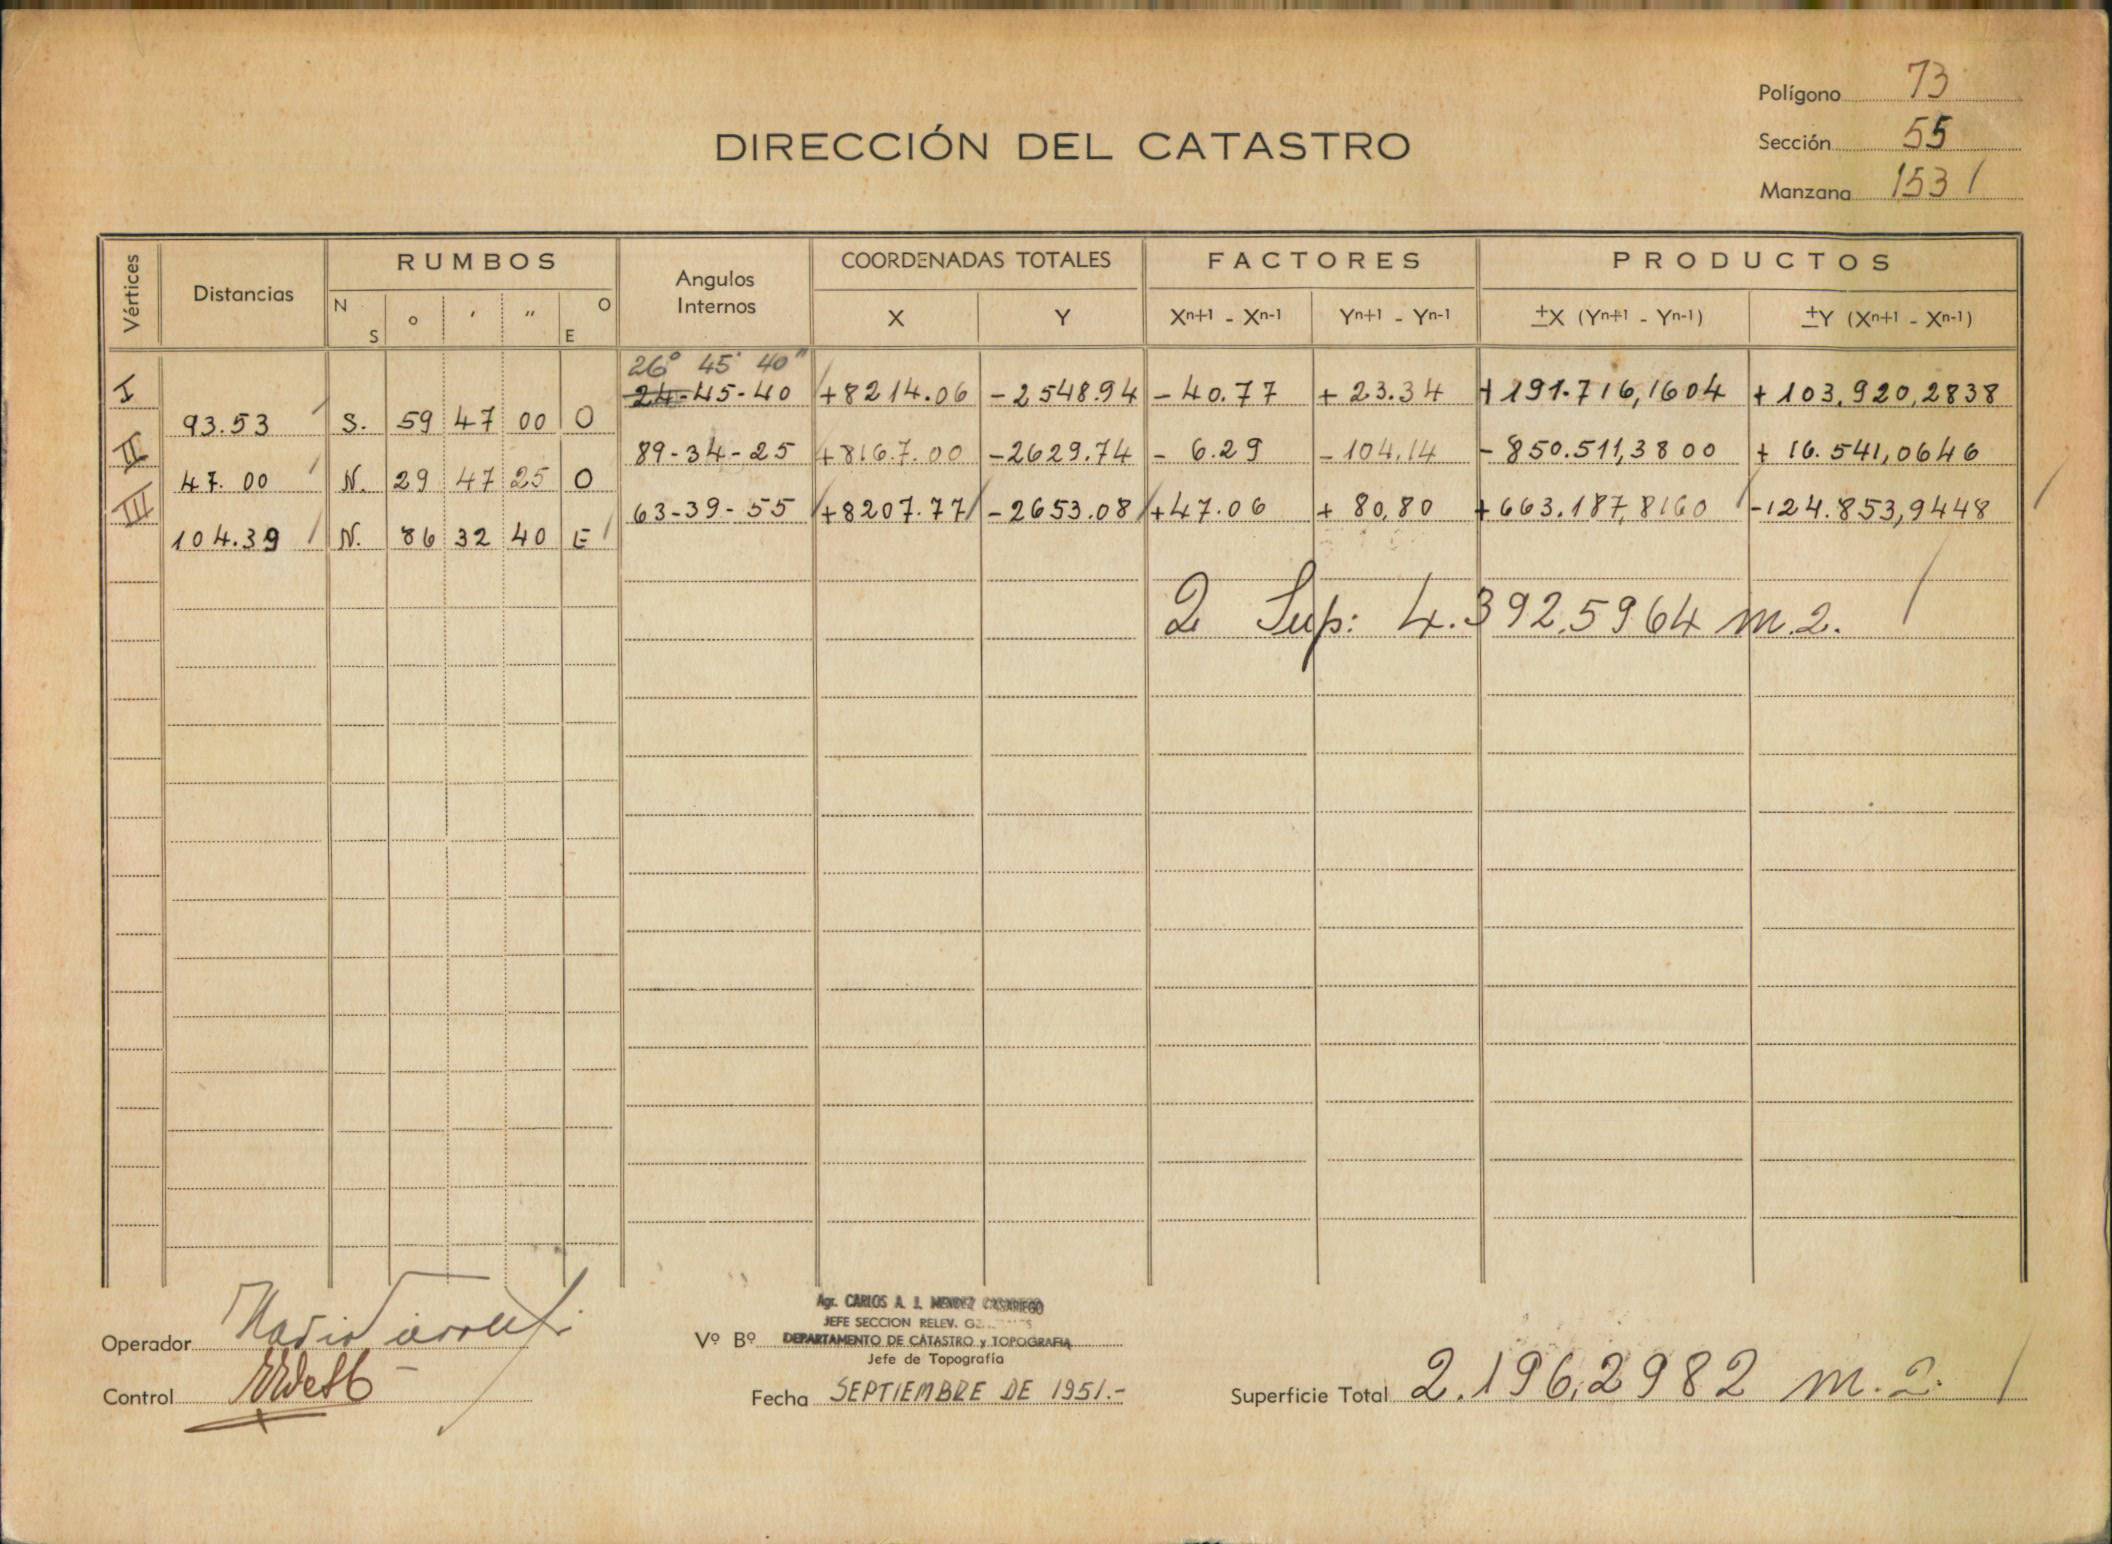 Polígono 73
DIRECCIÓN DEL CATASTRO
Sección 55
Manzana 153 /
Vértices Distancias RUMBOS Angulos Internos COORDENADAS TOTALES FACTORES PRODUCTOS
N S ° ' " O E X Y Xn+1 - Xn-1 Yn+1 - Yn-1 ±X (Yn+1 - Yn-1) ±Y (Xn+1 - Xn-1)
26° 45' 40"
I 24-45-40 +8214.06 -2548.94 -40.77 +23.34 +191.716,1604 +103.920,2838
93.53 S. 59 47 00 O
II 89-34-25 +8167.00 -2629.74 - 6.29 -104.14 -850.511,3800 + 16.541,0646
47.00 N. 29 47 25 O
III 63-39-55 +8207.77 -2653.08 +47.06 + 80,80 +663.187,8160 -124.853,9448
104.39 N. 86 32 40 E
2 Sup: 4.392,5964 m.2.
Agr. CARLOS A. J. MENDEZ CASARIEGO
JEFE SECCION RELEV.
Operador
Vº Bº DEPARTAMENTO DE CATASTRO y TOPOGRAFIA
Jefe de Topografía
Control
Fecha SEPTIEMBRE DE 1951.-
Superficie Total 2.196,2982 m.2.